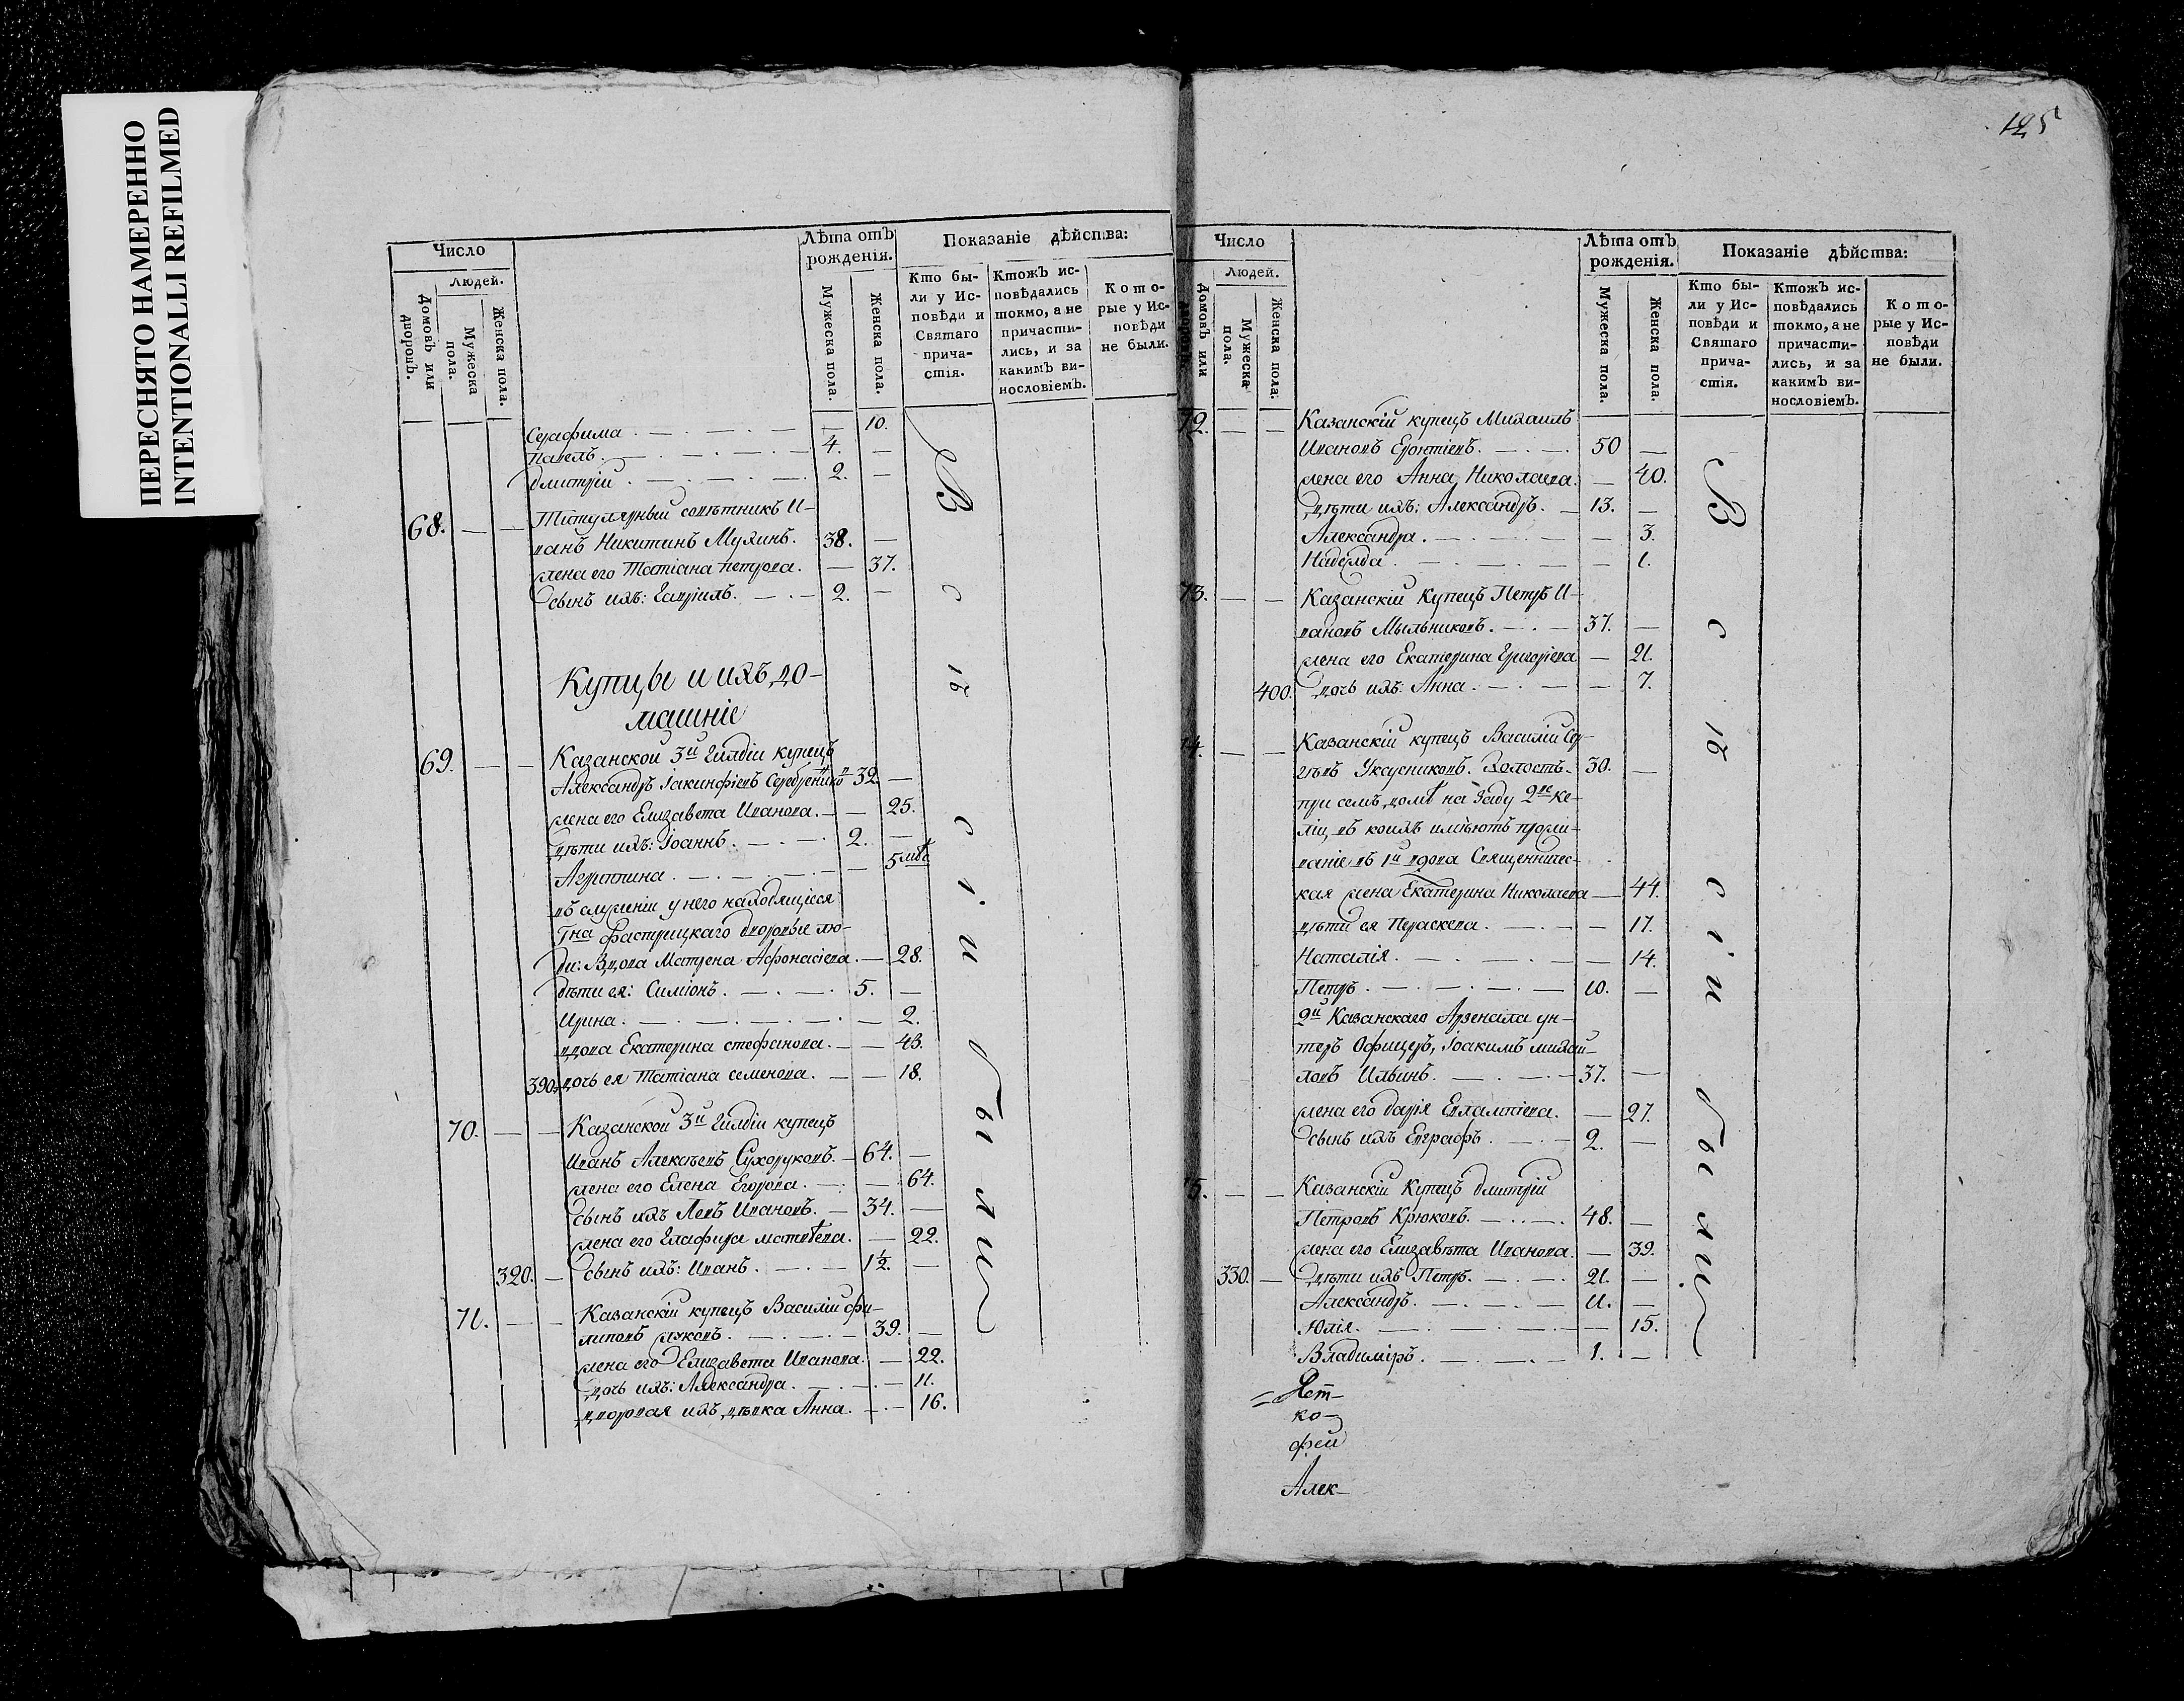 ПЕРЕСНЯТО НАМЕРЕННО
INTENTIONALLI REFILMED
Число
Людей.
Домовъ или дворовъ.
Мужеска пола.
Женска пола.
Лѣта отъ рожденія.
Мужеска пола.
Женска пола.
Показаніе дѣйства:
Кто бы-
ли у Ис-
повѣди и
Святаго
прича-
стія.
Ктожъ ис-
повѣдались
токмо, а не
причасти-
лись, и за
какимъ ви-
нословіемъ.
Кото-
рые у Ис-
повѣди
не были.
Серафима — 10.
Павелъ. 4. —
Дмитрій 2. —
68. — — Титулярный совѣтникъ И-
ванъ Никитинъ Мухинъ. 38. —
жена его Татіана Петрова. — 37.
сынъ ихъ: Гавріилъ. 2. —
Купцы и ихъ до-
машніе
69. — — Казанской 3й Гилдіи купецъ
Александръ Іакинфіевъ Серебрениковъ 32 —
жена его Елизавета Иванова. — 25.
Дѣти ихъ: Іоаннъ. 2. —
Агриппина. — 5 мѣс
въ служеніи у него находящіеся
Гна Фастрицкаго дворовые лю-
ди: Вдова Матрена Афонасіева. — 28.
дѣти ея: Симіонъ. 5. —
Ирина. — 2.
вдова Екатерина стефанова. — 43.
390. дочь ея Татіана семенова. — 18.
70. — — Казанской 3й Гилдіи купецъ
Иванъ Алексѣевъ Сухоруковъ. 64. —
жена его Елена Егорова. — 64.
сынъ ихъ Левъ Ивановъ. 34. —
жена его Глафира матвѣева. — 22.
320. — сынъ ихъ: Иванъ. 1½. —
71. — — Казанскій купецъ Василій фи-
липовъ жуковъ. 39. —
жена его Елизавета Иванова. — 22.
дочь ихъ: Александра. — 11.
дворовая ихъ дѣвка Анна. — 16.
В с ѣ с і и были
125
Число
Людей.
Домовъ или дворовъ.
Мужеска пола.
Женска пола.
Лѣта отъ рожденія.
Мужеска пола.
Женска пола.
Показаніе дѣйства:
Кто бы-
ли у Ис-
повѣди и
Святаго
прича-
стія.
Ктожъ ис-
повѣдались
токмо, а не
причасти-
лись, и за
какимъ ви-
нословіемъ.
Кото-
рые у Ис-
повѣди
не были.
72. — — Казанскій купецъ Михаилъ
Ивановъ Геронтіевъ. 50 —
жена его Анна Николаева. — 40.
Дѣти ихъ: Александръ. 13. —
Александра. — 3.
Надежда. — 1.
73. — — Казанскій Купецъ Петръ И-
вановъ Мыльниковъ. 37. —
жена его Екатерина Григоріева — 21.
400. дочь ихъ: Анна. — 7.
74. — — Казанскій купецъ Василій Сер-
гѣевъ Уксусниковъ. Холостъ. 30. —
при семъ домѣ на Заду 2ве Ке-
ліи, въ коихъ имѣютъ прожи-
ваніе въ 1й вдова Священничес-
кая жена Екатерина Николаева — 44.
дѣти ея Параскева. — 17.
Наталія. — 14.
Петръ. 10. —
2й Казанскаго Арзенала ун-
теръ Офицеръ, Іоакимъ михай-
ловъ Ильинъ. 37. —
жена его дарія Евлампіева. — 27.
сынъ ихъ Евграфъ. 2. —
75. — — Казанскій Купецъ дмитрій
Петровъ Крюковъ. 48. —
жена его Елизавѣта Иванова. — 39.
330. — Дѣти ихъ Петръ. 21. —
Александръ. 11. —
Юлія. — 15.
Владиміръ. 1. —
В с ѣ с і и были
ко-
фей
Алек-